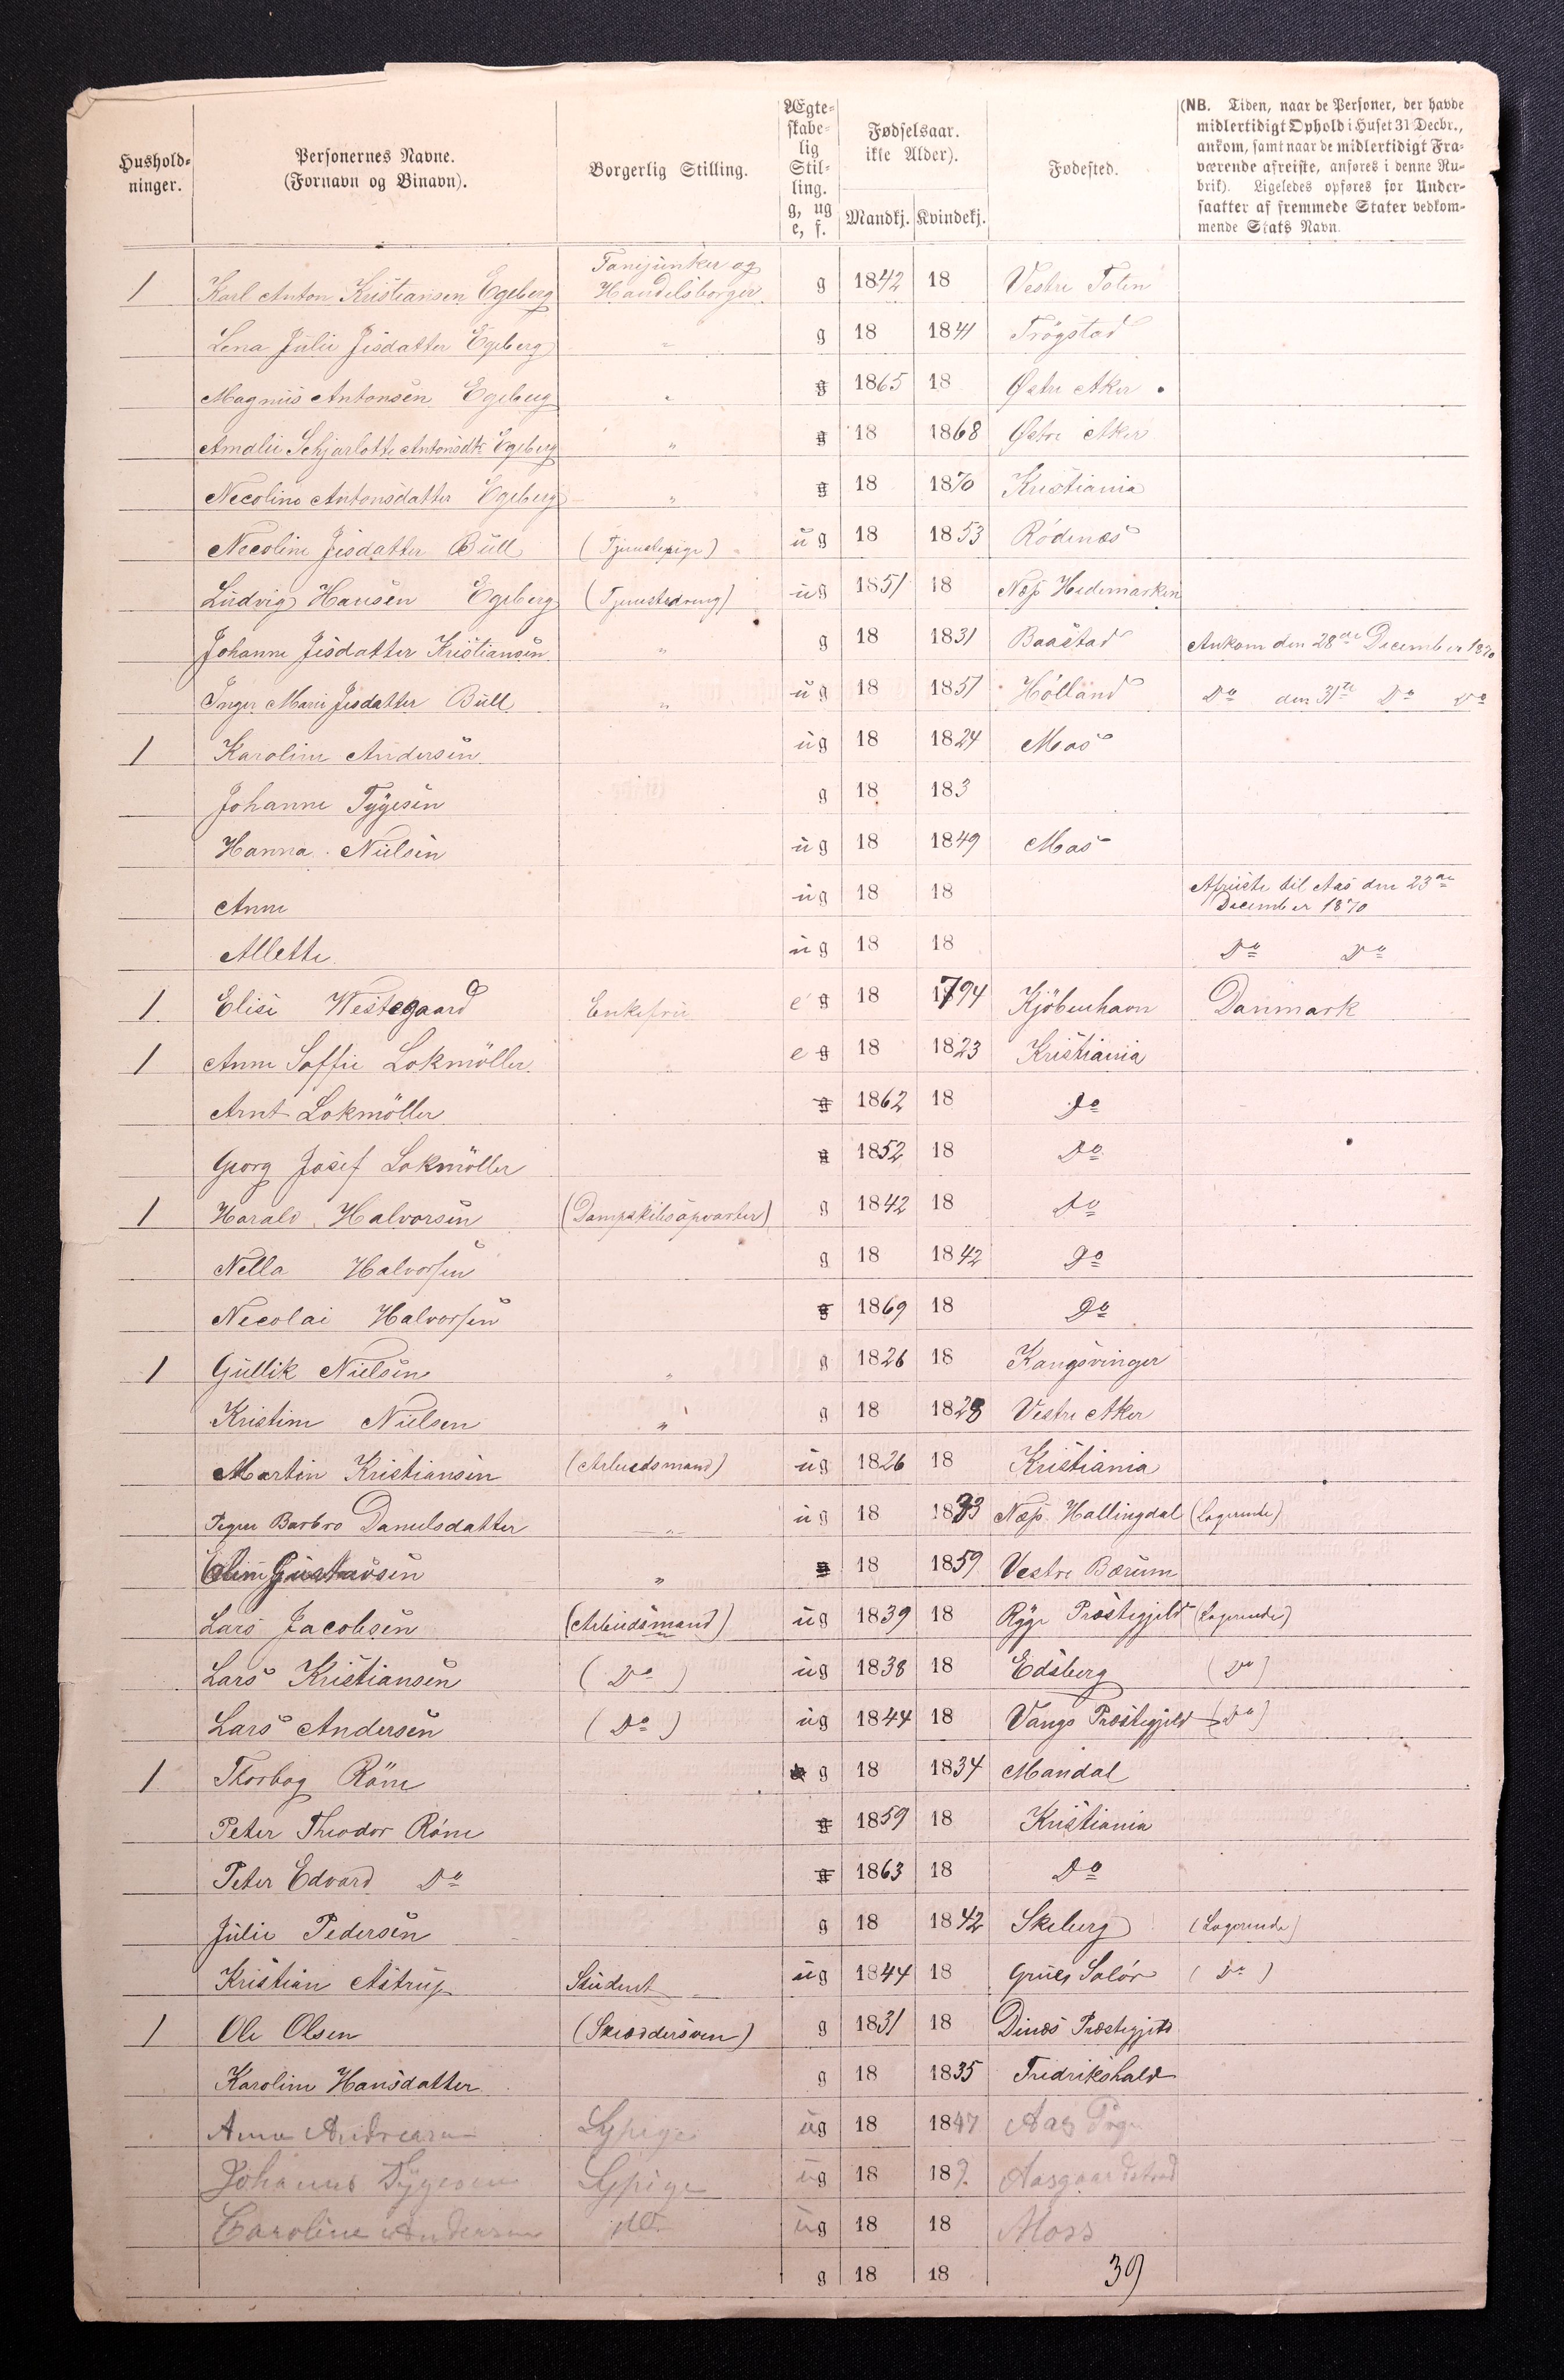 Hushold-
ninger.
Personernes Navne.
(Fornavn og Binavn).
Borgerlig Stilling.
Ægte-
skabe-
lig
Stil-
ling.
g, ug
e, f.
Fødselsaar.
ikke Alder).
Mandkj. Kvindekj.
Fødested.
(NB. Tiden, naar de Personer, der havde
midlertidigt Ophold i Huset 31 Decbr.,
ankom, samt naar de midlertidigt Fra-
værende afreiste, anføres i denne Ru-
brik). Ligeledes opføres for Under-
saatter af fremmede Stater vedkom-
mende Stats Navn.
1 Karl Anton Kristiansen Egeberg og Handelsborger g 1842 18 Vestre Toten
Lena Julie Jisdatter Egeberg " g 18 1841 Trögstad
Magnus Antonsen Egeberg " g 1865 18 Østre Aker
Amalie Schjarlotte Antonsdtr Egeberg " g 18 1868 Østre Aker
Necoline Antonsdatter Egeberg " g 18 1870 Kristiania
Necoline Jisdatter Bull (Tjenestepige) ug 18 1853 Rödenæs
Ludvig Hansen Egeberg (Tjenestedreng) ug 1851 18 Næs Hedemarken
Johanne Jisdatter Kristiansen " g 18 1831 Baastad Ankom den 28de December 1870
Inger Marie Jisdatter Bull " ug 18 1851 Hölland Do den 31te Do Do
1 Karoline Andersen ug 18 1824 Mos
Johanne Tygesen g 18 183
Hanna Nielsen ug 18 1849 Mos
Anne ug 18 18 Afreiste til Aas den 23de
December 1870
Allette ug 18 18 Do Do
1 Elise Westegaard Enkefru e g 18 1794 Kjöbenhavn Danmark
1 Anne Soffie Lokmöller e g 18 1823 Kristiania
Arnt Lokmöller g 1862 18 Do
Georg Josef Lokmöller g 1852 18 Do
1 Harald Halvorsen (Dampskibsopvarter) g 1842 18 Do
Nella Halvorsen g 18 1842 Do
Necolai Halvorsen g 1869 18 Do
1 Gullik Nielsen " g 1826 18 Kangsvinger
Kristine Nielsen " g 18 1828 Vestre Aker
Martin Kristiansen (Arbeidsmand) ug 1826 18 Kristiania
Barbro Danielsdatter " ug 18 1833 Næs Hallingdal (Logerende)
Gustavsen " g 18 1859 Vestre Bærum
Lars Jacobsen (Arbeidsmand) ug 1839 18 Ryge Præstegjeld (Logerende)
Lars Kristiansen (Do) ug 1838 18 Edsberg (Do)
Lars Andersen (Do) ug 1844 18 Vangs Præstegjeld (Do)
1 Thorbog Röme g 18 1834 Mandal
Peter Theodor Röme g 1859 18 Kristiania
Peter Edvard Do g 1863 18 Do
Julie Pedersen g 18 1842 Skeberg (Logerende)
Kristian Astrup Student ug 1844 18 Grues Solör (Do)
1 Ole Olsen (Skræddersven) g 1831 18 Præstegjeld
Karoline Hansdatter g 18 1835 Fredrikshald
Anna Andreasen Sypige ug 18 1847 Aas
Johanne Tygesen Sypige ug 18 18 Aasgaardstrand
Caroline Andersen do ug 18 18 Moss
g 18 18 39